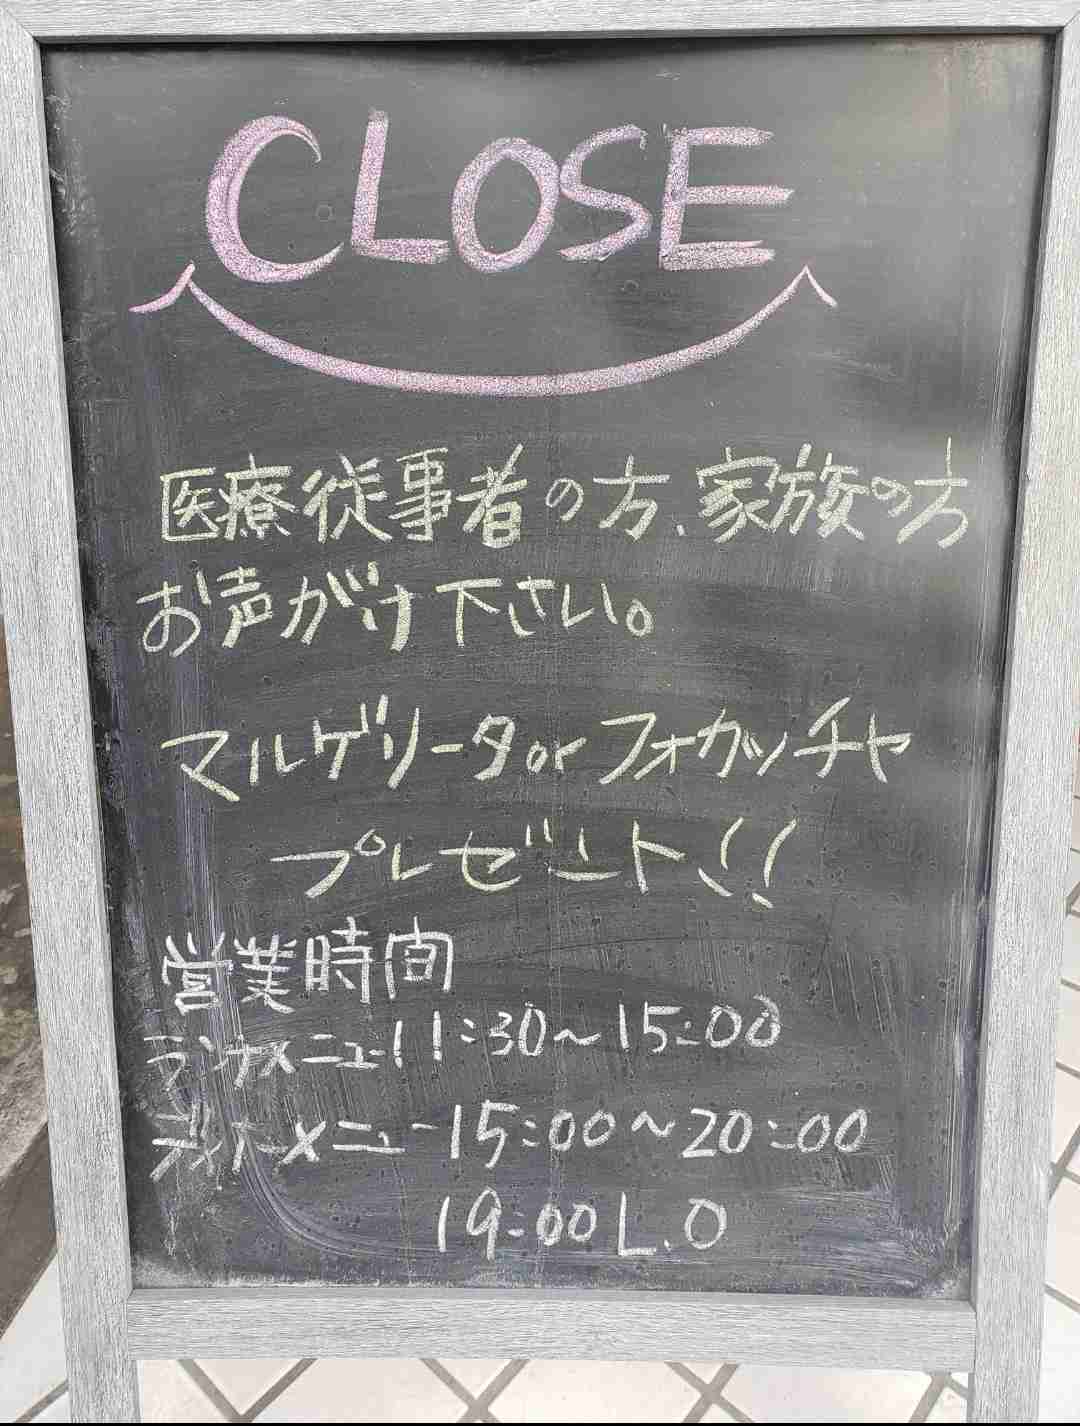 CLOSE
医療従事者の方、家族の方
お声がけ下さい。
マルゲリータorフォカッチャ
プレゼント!!
営業時間
ランチメニュー11:30〜15:00
メニュー15:00〜20:00
19:00 L.O